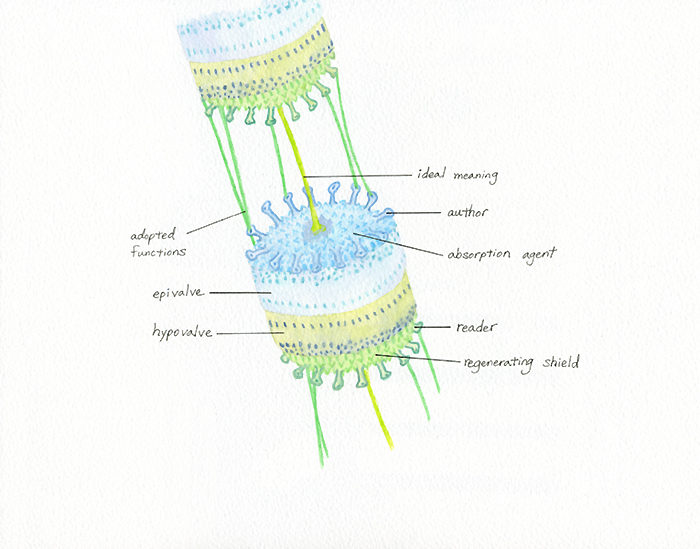 ideal meaning
author
adopted
functions
absorption agent
epivalve
hypovalve
reader
regenerating shield